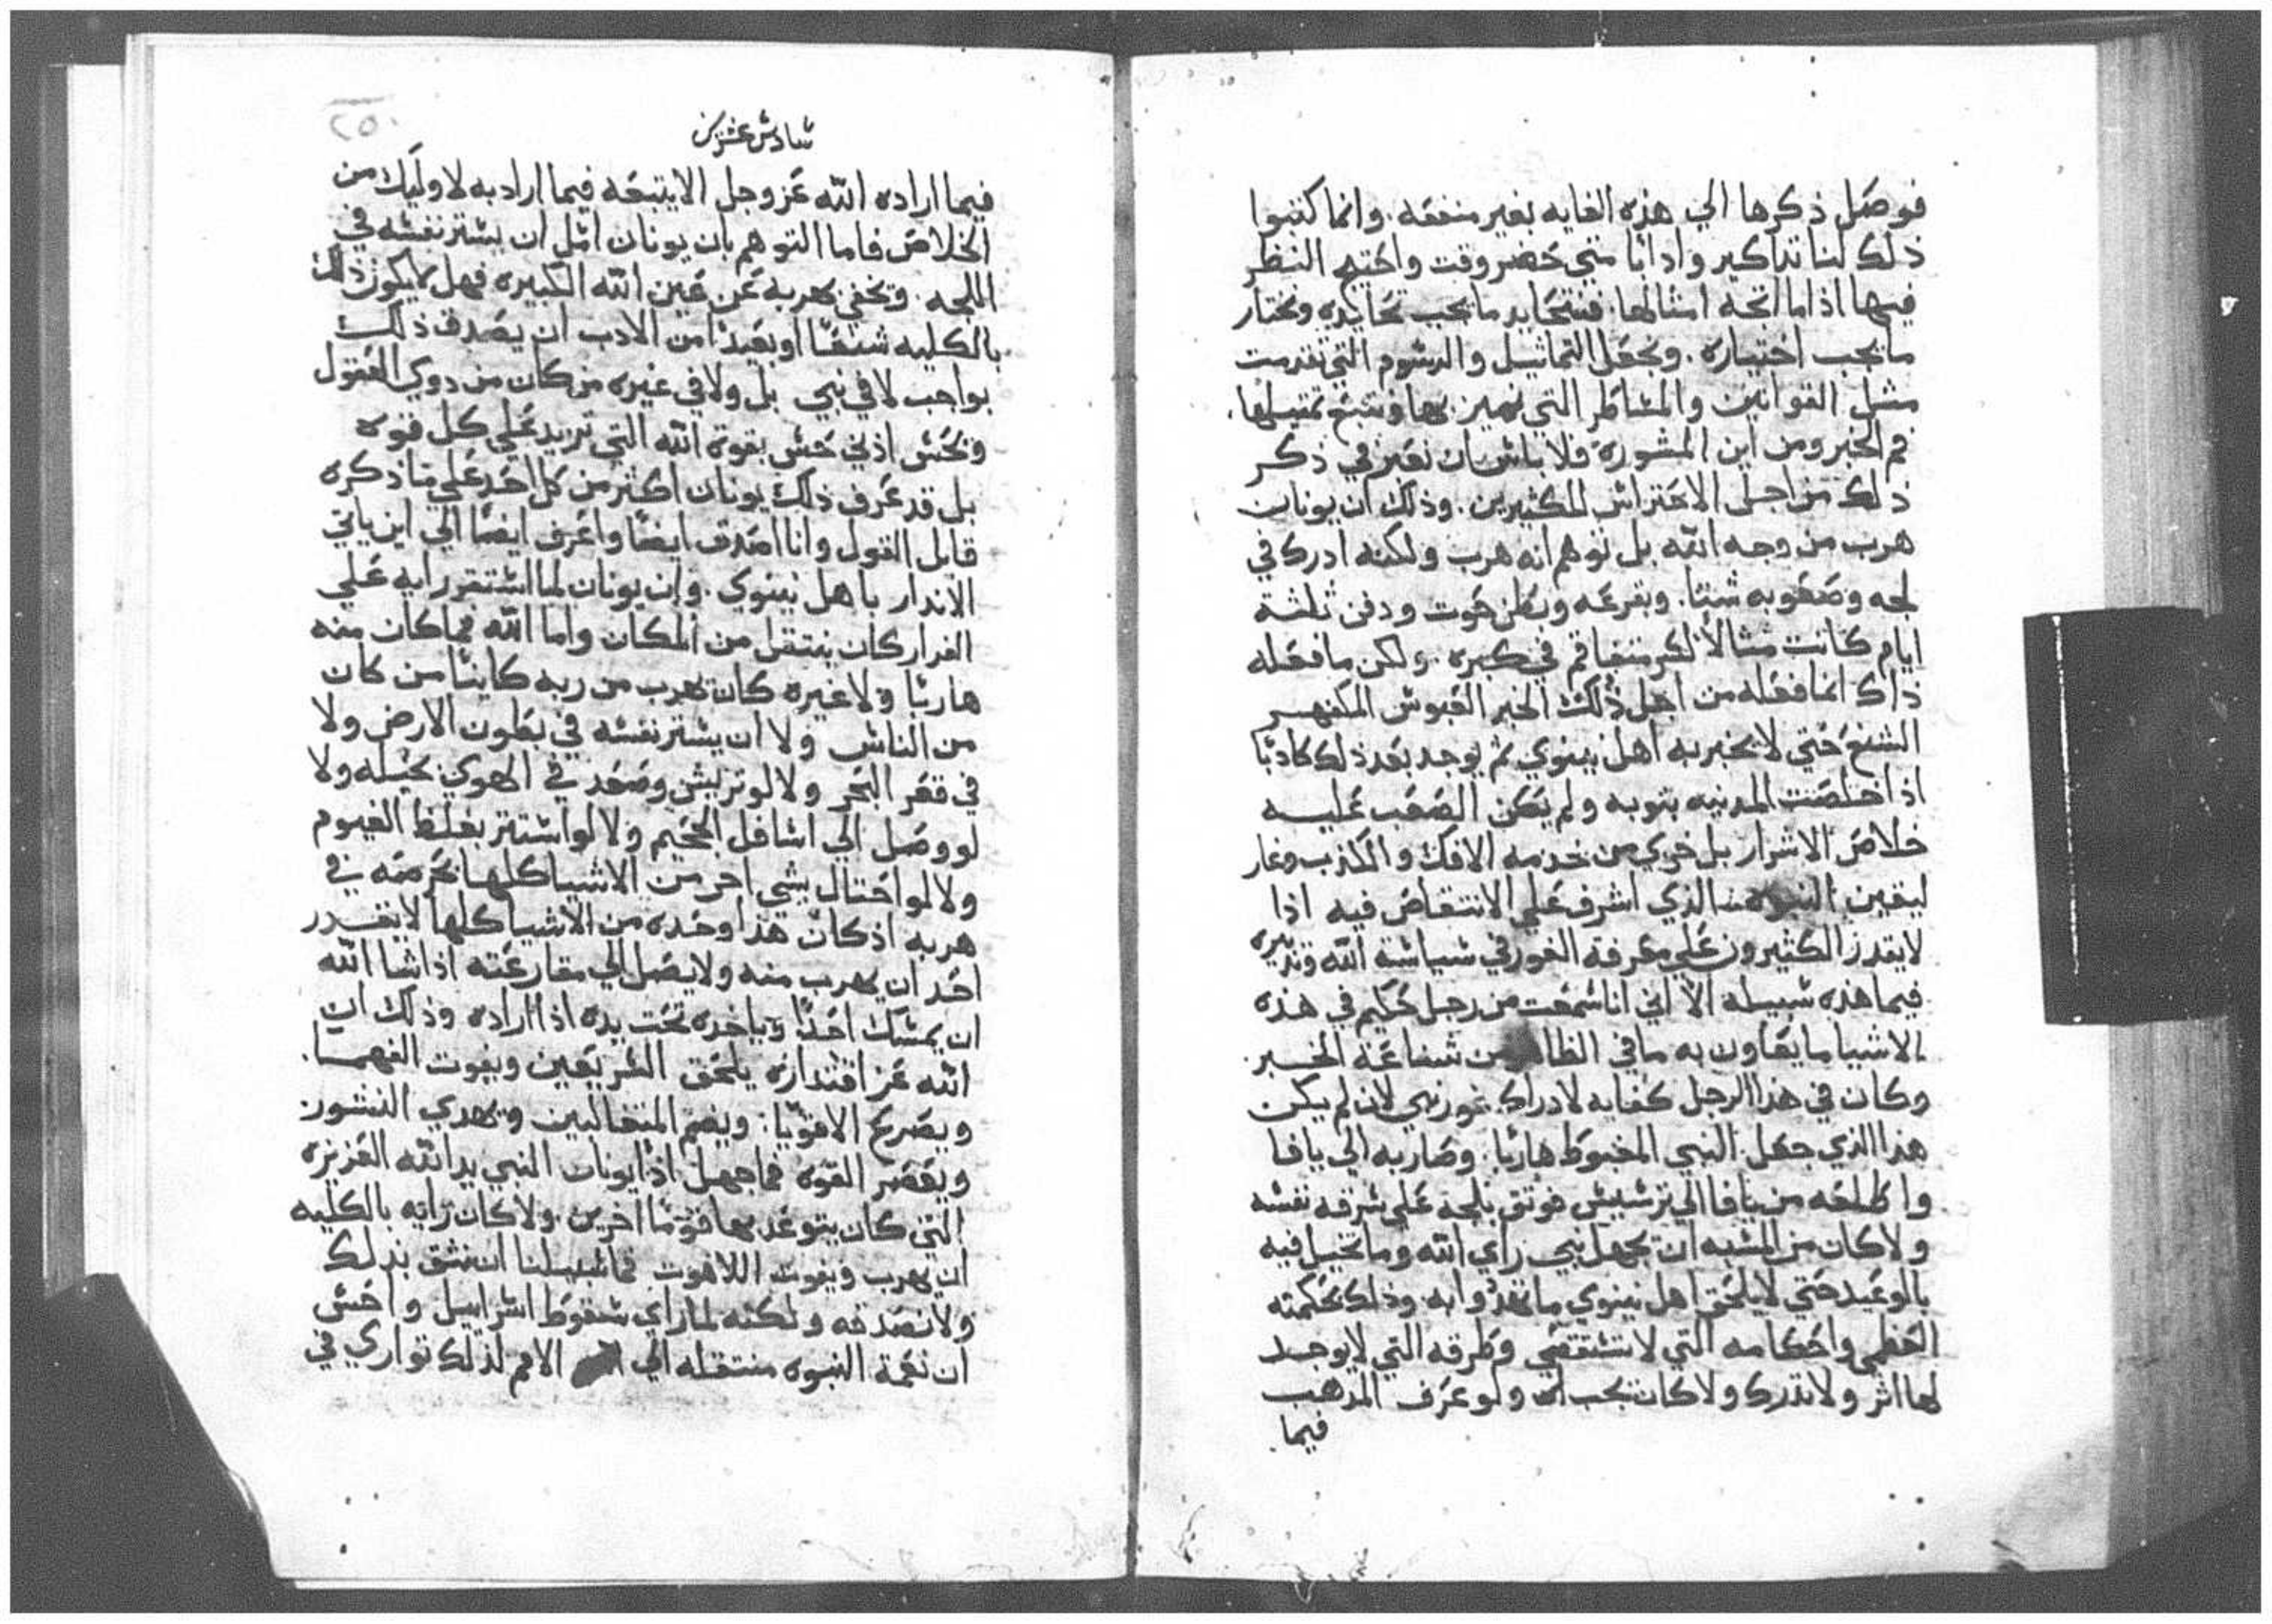 فوصل ذكرها الي هذه الغايه بغير منفعه. وانما كتبوا
ذلك لنا تداكير وادابا متي حضر وقت واحتيج النظر
فيها اذا ما اتجه امثالها. فنتحايد ما يجب تحايده ونختار
ما يجب اختياره. ونجعل التماثيل والرسوم التي تقدمت
مثل القوانين والمساطر التي نميز بها ونتبع تمثيلها.
فم الخبر ومن اين المشوره فلا باس ان نغير في ذكر
ذلك من اجل الاحتراس للكثيرين. وذلك ان يونان
هرب من وجه الله بل توهم انه هرب ولكنه ادرك في
لجه وصعوبه شتا. وبقرعه وبطن حوت ودفن ثلثة
ايام كانت مثالا لسر متفاقم في كبره. ولكن ما فعله
ذاك انما فعله من اجل ذلك الخبر العبوس المكفهر
الشنع حتي لا يخبر به اهل نينوي ثم يوجد بعد ذلك كادبا
اذا خلصت المدينه بتوبه ولم يكن الصعب عليه
خلاص الاشرار بل خري من خدمه الافك والكدب وغار
ليقين النبوه الذي اشرف علي الانتقاض فيه اذا
لا يقدر الكثيرون علي معرفة الغور في سياسة الله وتدبيره
فيما هذه سبيله الا اني انا سمعت من رجل حكيم في هذه
الاشيا ما يعاون به ما في الظاهر من شناعة الخبر
وكان في هذا الرجل كفايه لادراك غور نبي لان لم يكن
هذا الذي جعل النبي المغبوط هاربا. وصار به الي يافا
واطلعه من يافا الي ترسيس فوثق بلجه علي سرقه نفسه
ولا كان من المشبه ان يجهل نبي راي الله وما تخيل فيه
بالوعيد حتي لا يلحق اهل نينوي ما تهددوا به وذلك بحكمته
العظمي واحكامه التي لا تستقصي وطرقه التي لا يوجد
لها اثر ولا تدرك ولا كان يجب له ولو عرف المدهب
فيما
سادس عشرين
٢٥٠
فيما اراده الله عز وجل الا يتبعه فيما اراد به لاوليك من
الخلاص فاما التوهم بان يونان امل ان يستر نفسه في
اللجه. ويخفي بهربه عن عين الله الكبيره فهل لا يكون ذلك
بالكليه شنعا او بعيدا من الادب ان يصدق ذلك
بواجب لا في نبي بل ولا في غيره من كان من دوي العقول
ويحس ادني حس بقوة الله التي تزيد علي كل قوه
بل قد عرف ذلك يونان اكثر من كل احد علي ما ذكره
قايل القول وانا اصدق ايضا واعرف ايضا الي اين ياتي
الاندار باهل نينوي. وان يونان لما استقر رايه علي
الفرار كان ينتقل من المكان واما الله فما كان منه
هاربا ولا غيره كان يهرب من ربه كاينا من كان
من الناس ولا ان يستر نفسه في بطون الارض ولا
في قعر البحر ولا لو تريش وصعد في الهوي بحيله ولا
لو وصل الي اسافل الجحيم ولا لو استتر بغلظ الغيوم
ولا لو احتال بشي اخر من الاشيا كلها تحر منه في
هربه اذ كان هذا وحده من الاشيا كلها لا يقدر
احد ان يهرب منه ولا يصل الي مقارعته اذا شا الله
ان يمسك احدا وياخده تحت يده اذا اراده وذلك ان
الله عز اقتداره يلحق السريعين ويفوت الفهما.
ويصرع الاقويا: ويضم المتعاليين ويهدي النشور
ويقصر القوه فما جهل اذا يونان النبي يد الله العزيزه
التي كان يتوعد بها قوما اخرين. ولا كان رايه بالكليه
ان يهرب ويفوت اللاهوت فما سبيلنا ان نثق بدلك
ولا نصدقه ولكنه لما راي سقوط اسراييل واحس
ان نعمة النبوه منتقله الي الامم لذلك تواري في